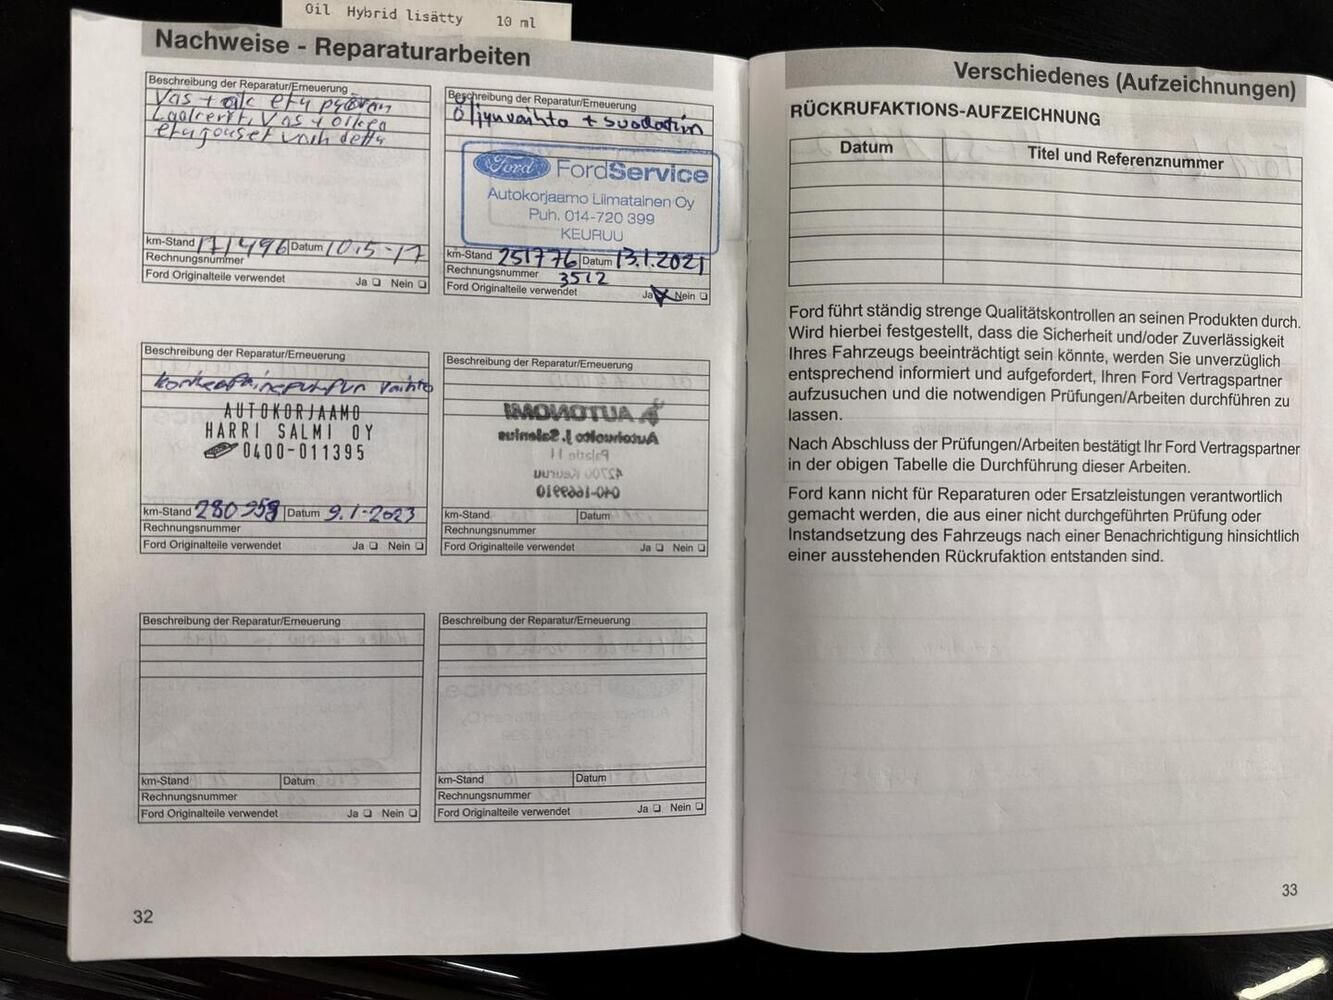 Oil Hybrid lisätty 10 ml
Nachweise - Reparaturarbeiten
Beschreibung der Reparatur/Erneuerung
Vas + oik etupyörän
Laakerit, Vas + oikea
etujouset vaihdettu
km-Stand 171496 Datum 10.5-17
Rechnungsnummer
Ford Originalteile verwendet Ja Nein
Beschreibung der Reparatur/Erneuerung
Öljynvaihto + suodatin
Ford FordService
Autokorjaamo Liimatainen Oy
Puh. 014-720 399
KEURUU
km-Stand 251776 Datum 13.1.2021
Rechnungsnummer 3512
Ford Originalteile verwendet Ja Nein
Beschreibung der Reparatur/Erneuerung
korkeapainepumpun vaihto
AUTOKORJAAMO
HARRI SALMI OY
0400-011395
km-Stand 280958 Datum 9.1-2023
Rechnungsnummer
Ford Originalteile verwendet Ja Nein
Beschreibung der Reparatur/Erneuerung
AUTONOMI
Autohuolto J. Salenius
42700 Keuruu
040-1669910
km-Stand Datum
Rechnungsnummer
Ford Originalteile verwendet Ja Nein
Beschreibung der Reparatur/Erneuerung
km-Stand Datum
Rechnungsnummer
Ford Originalteile verwendet Ja Nein
Beschreibung der Reparatur/Erneuerung
km-Stand Datum
Rechnungsnummer
Ford Originalteile verwendet Ja Nein
32
Verschiedenes (Aufzeichnungen)
RÜCKRUFAKTIONS-AUFZEICHNUNG
Datum Titel und Referenznummer
Ford führt ständig strenge Qualitätskontrollen an seinen Produkten durch.
Wird hierbei festgestellt, dass die Sicherheit und/oder Zuverlässigkeit
Ihres Fahrzeugs beeinträchtigt sein könnte, werden Sie unverzüglich
entsprechend informiert und aufgefordert, Ihren Ford Vertragspartner
aufzusuchen und die notwendigen Prüfungen/Arbeiten durchführen zu
lassen.
Nach Abschluss der Prüfungen/Arbeiten bestätigt Ihr Ford Vertragspartner
in der obigen Tabelle die Durchführung dieser Arbeiten.
Ford kann nicht für Reparaturen oder Ersatzleistungen verantwortlich
gemacht werden, die aus einer nicht durchgeführten Prüfung oder
Instandsetzung des Fahrzeugs nach einer Benachrichtigung hinsichtlich
einer ausstehenden Rückrufaktion entstanden sind.
33